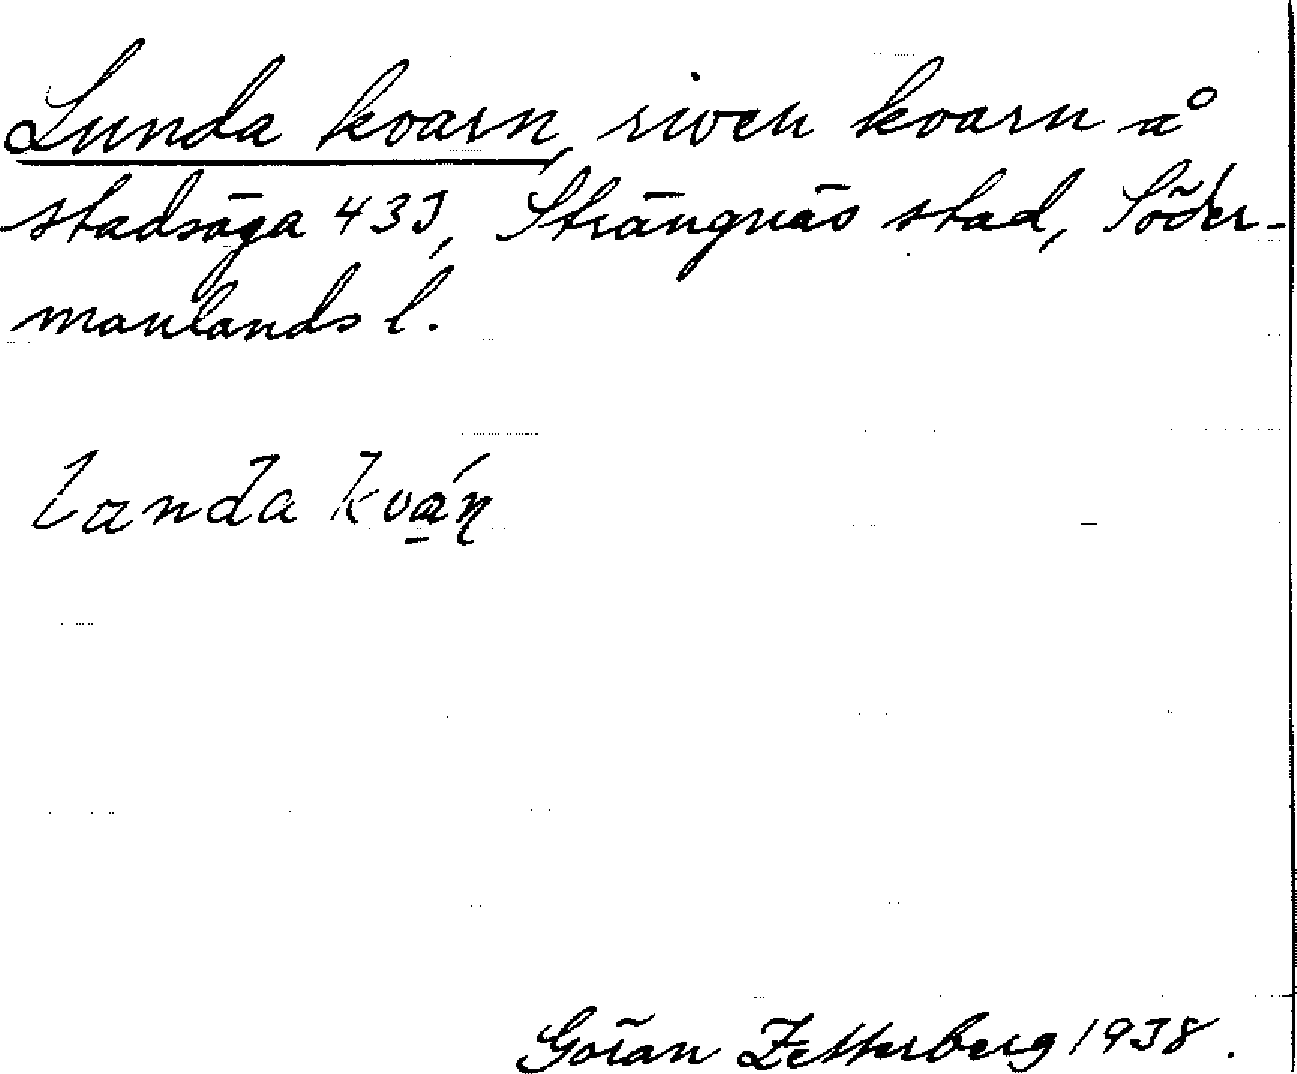 Lunda kvarn, riven kvarn å
stadsäga 433, Strängnäs stad, Söder-
manlands l.
landa kván
Göran Zetterberg 1938.